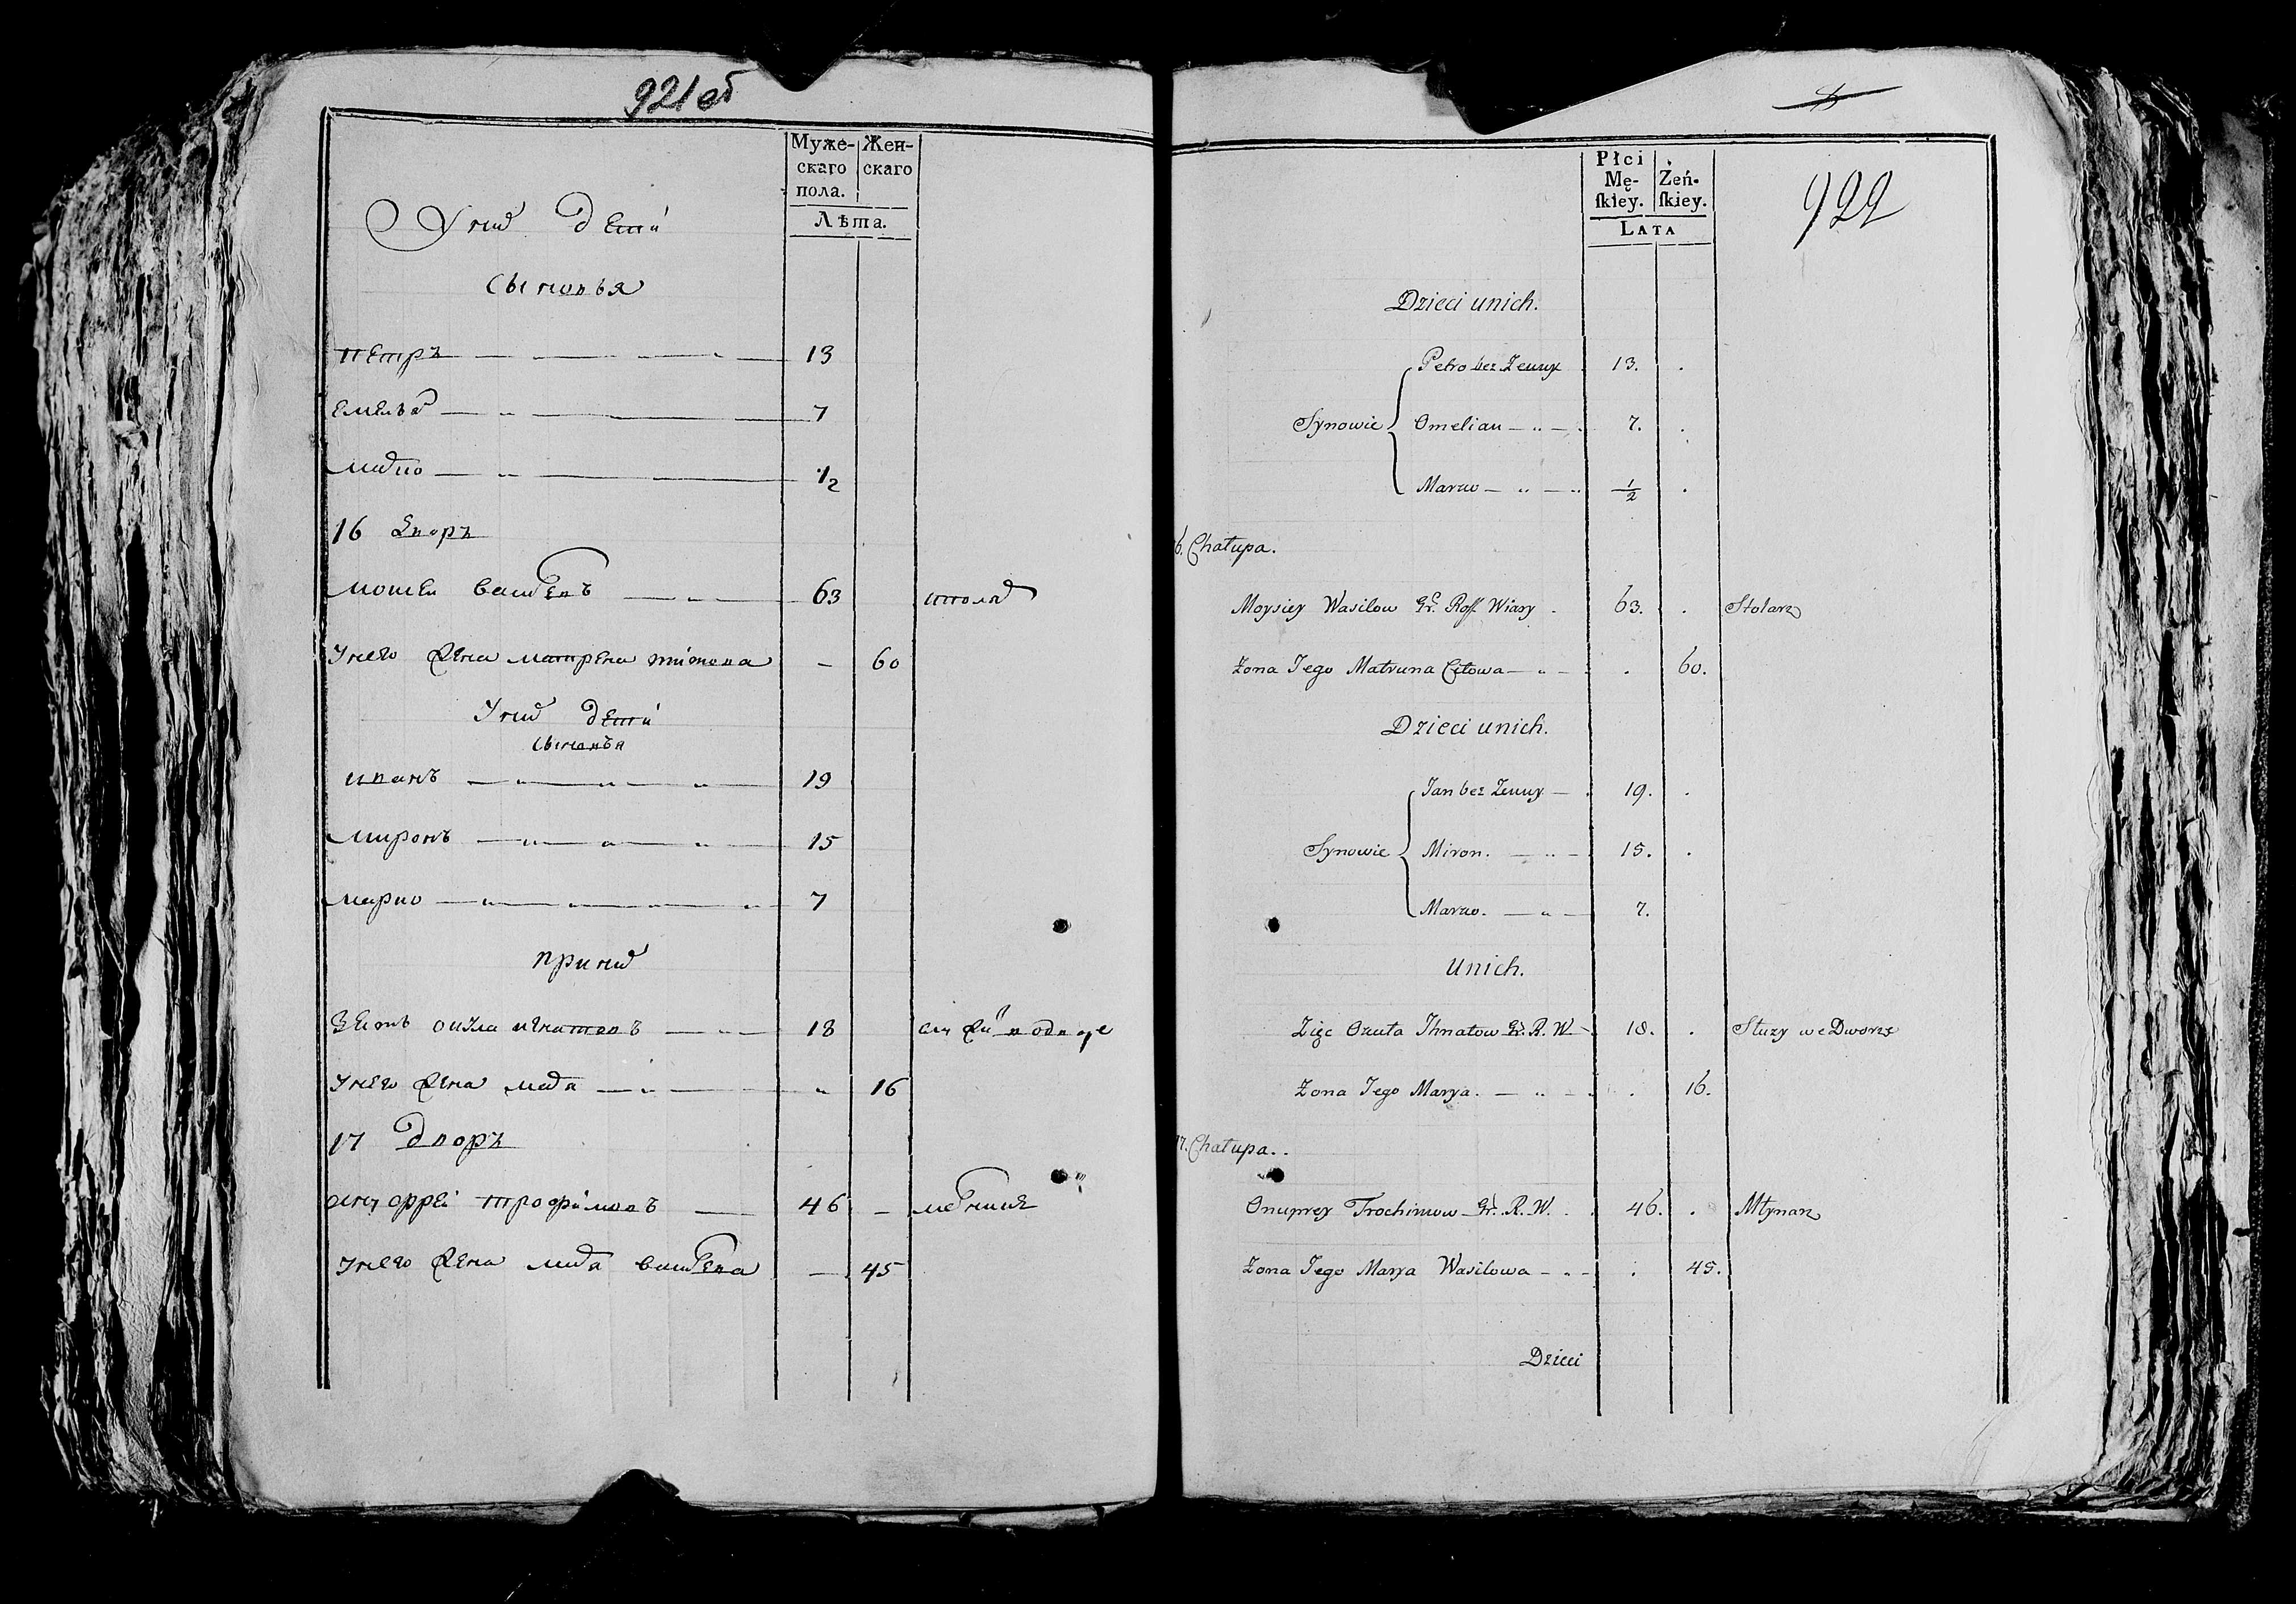 921 об
Муже-
скаго
пола.
Жен-
скаго
Лѣта.
У них дети
Сыновья
петръ 13
Емелья 7
марко 1/2
16 дворъ
Мосеи василевъ 63 столяр
У него жена матрена титова — 60
У них дети
сыновья
иванъ 19
миронъ 15
марко 7
при них
Зеть окула игнатовъ 18
У него жена марья 16
17 дворъ
онуфреи трофимовъ 46 — мельник
У него жена марья василева — 45
922
Płci
Mę-
skiey.
Żeń-
skiey.
LATA
Dzieci unich.
Petro bez Żenny 13.
Synowie Omelian 7.
Marko 1/2
16. Chałupa.
Moysiey Wasilow Gr. Ross. Wiary 63. Stolarz
Żona Jego Matruna Citowa 60.
Dzieci unich.
Jan bez Żenny 19.
Synowie Miron. 15.
Marko. 7.
Unich.
Zięc Okuła Ihnatow Gr. R. W. 18. Służy we Dworze
Żona Jego Marya. 16.
17. Chałupa.
Onuprey Trochimow Gr. R. W. 46. Młynarz
Żona Jego Marya Wasilowa 45.
Dzieci